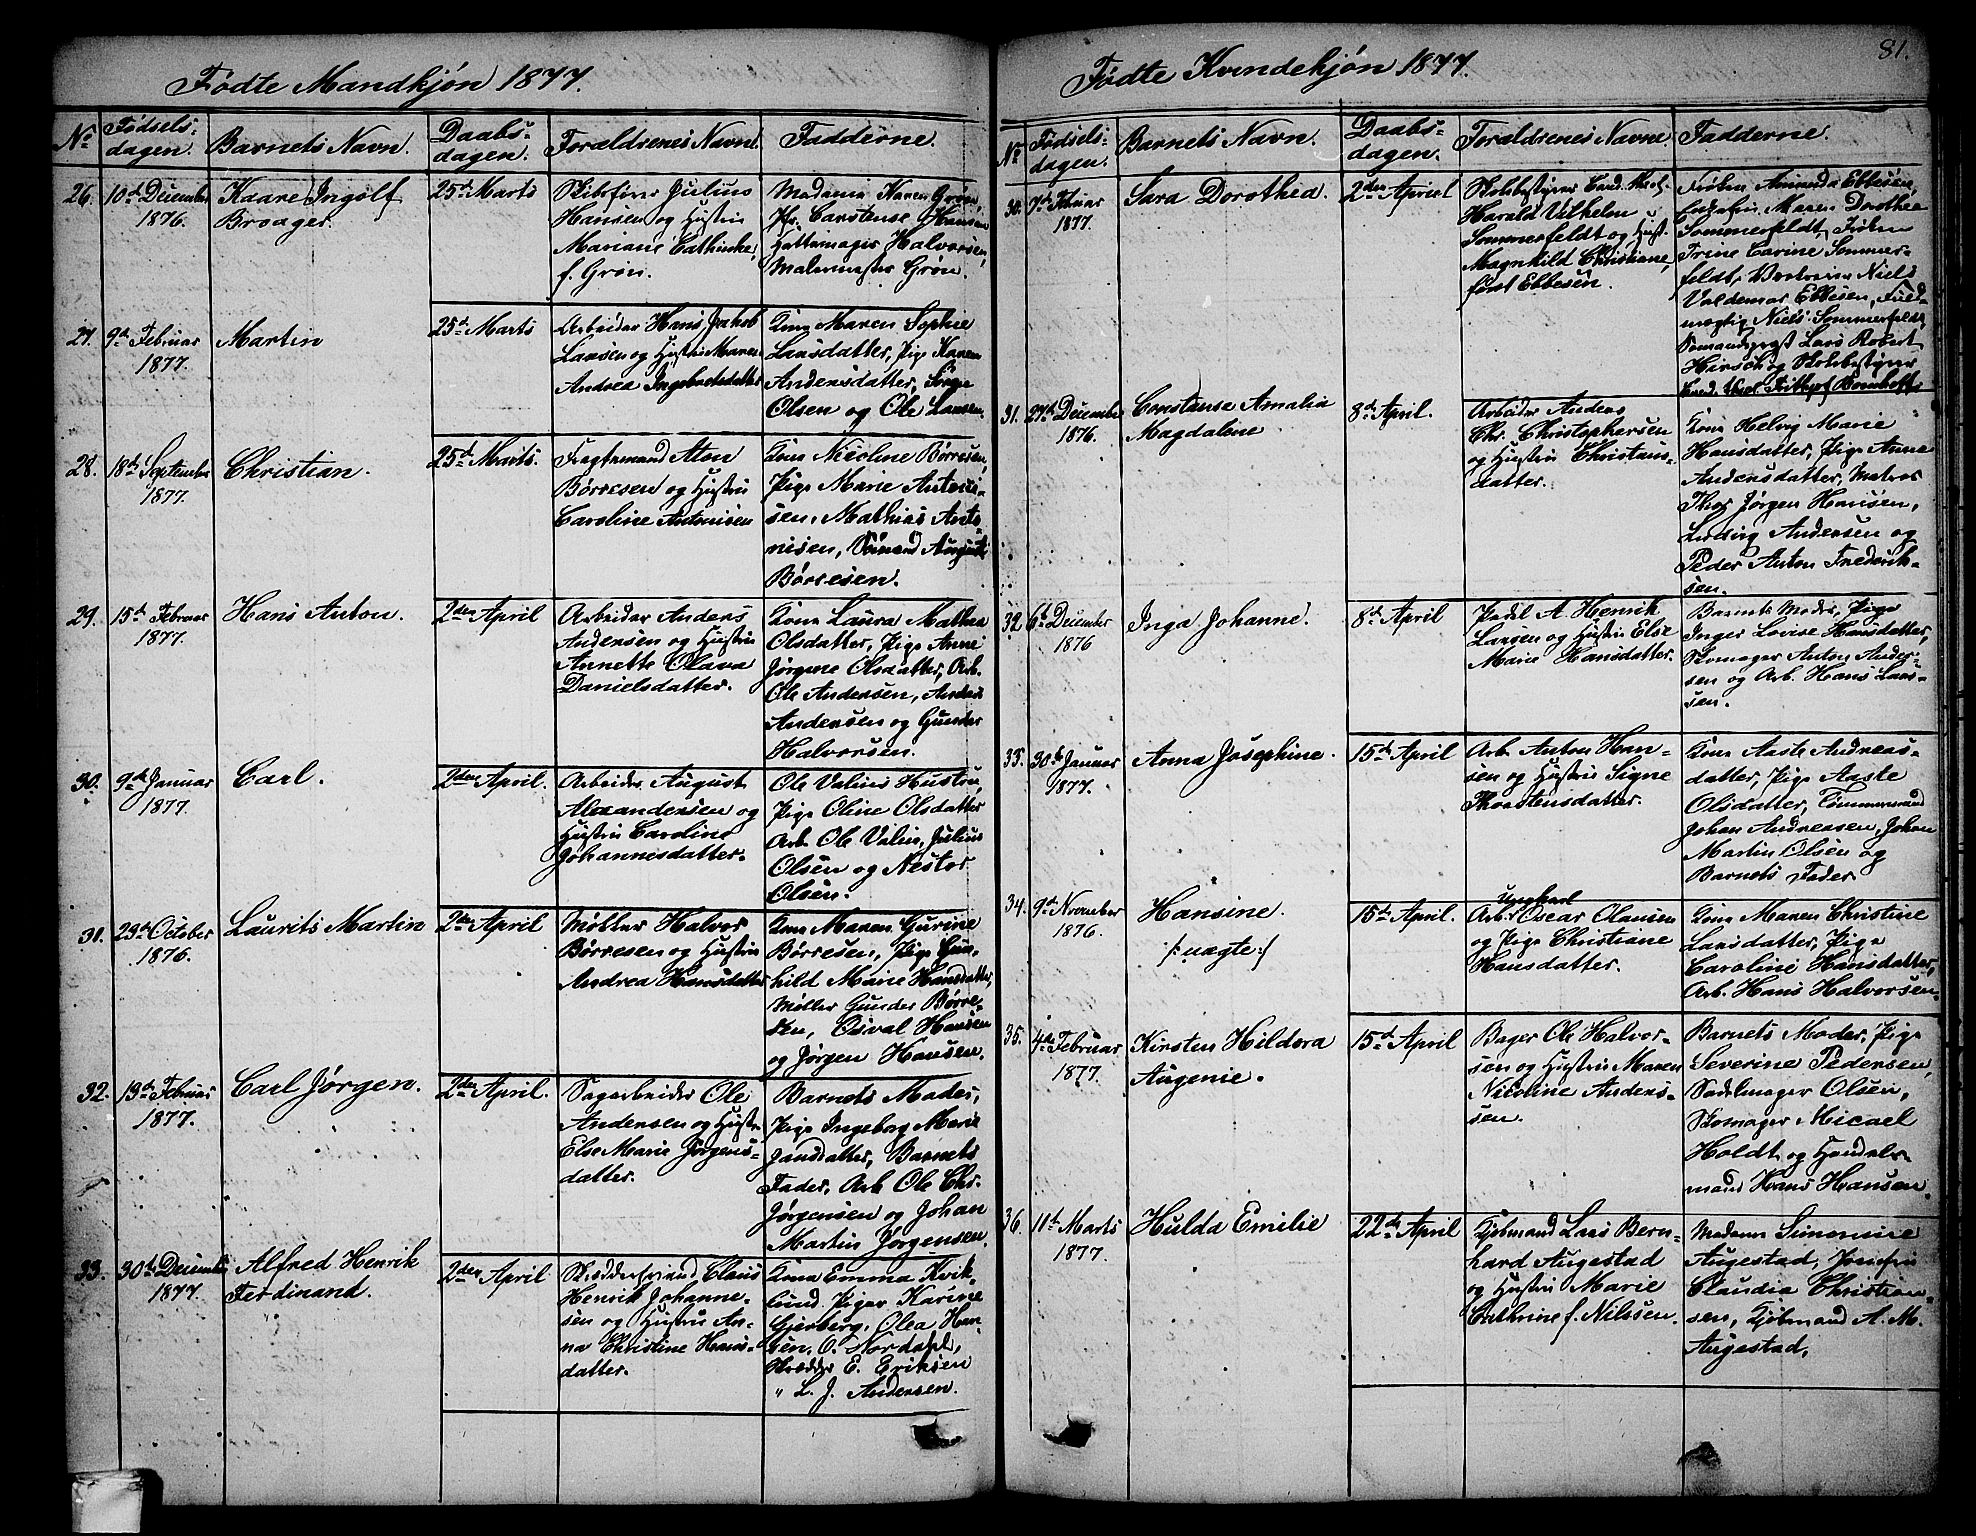 Fødte Mandkjøn 1877.
No
Fødsels-
dagen.
Barnets Navn.
Daabs-
dagen.
Forældrenes Navne
Fadderne.
26.
10de December
1876.
Kaare Ingolf
Broager.
25de Marts
Skibsfører Julius
Hansen og Hustru
Mariane Cathinka,
f. Grøn.
Madame Karen Grøn,
Carstense Hansen
Halvorsen,
Malermester Grøn.
27.
9de Februar
1877.
Martin
25de Marts
Arbeider Hans Jakob
Larsen og Hustru Maren
Andrea Ingebretsdatter
Kone Maren Sophie
Larsdatter, Pige Karen
Andersdatter,
Olsen og Ole Larsen.
28.
18de September
1877.
Christian.
25de Marts.
Fragtemand Aton
Børresen og Hustru
Caroline Antonisen
Kone Nicoline Børresen,
Pige Marie Antoni-
sen, Mathias Anto-
nisen, Sømand August
Børresen.
29.
15de Februar
1877.
Hans Anton.
2den April
Arbeider Anders
Andersen og Hustru
Annette Olava
Danielsdatter.
Kone Laura Mathea
Olsdatter, Pige Anne
Jørgine Olsdatter, Arb.
Ole Andersen, Anders
Andersen og Gunder
Halvorsen.
30.
9de Januar
1877.
Carl.
2den April.
Arbeider August
Alexandersen og
Hustru Caroline
Johannisdatter.
Ole Valius Hustru,
Pige Oline Olsdatter
Arb. Ole Valius, Julius
Olsen og Nestor
Olsen.
31.
23de October
1876.
Laurits Martin
2den April
Møller Halvor
Børresen og Hustru
Andrea Hansdatter
Kone Maren Gurine
Børresen, Pige Gun-
hild Marie Hansdatter,
Møller Gunder Børre-
sen, Osval Hansen
og Jørgen Hansen.
32.
13de Februar
1877.
Carl Jørgen.
2den April.
Sagarbeider Ole
Andersen og Hustr.
Else Marie Jørgens-
datter.
Barnets Moder,
Pige Ingeborg Marie
Jansdatter, Barnets
Fader, Arb Ole Chr.
Jørgensen og Johan
Martin Jørgensen.
33.
30de December
1877.
Alfred Henrik
Ferdinand.
2den April
Skræddersvend Claus
Henrik Johanne-
sen og Hustru An-
na Christine Hans-
datter.
Kone Emma Kvik-
lund. Piger Karine
Gjerberg, Olea Han-
sen, O. Nordahl,
Skrædder E. Eriksen
" L. J. Andersen.
Fødte Kvindekjøn 1877.
81.
No
Fødsels-
dagen.
Barnets Navn.
Daabs-
dagen.
Forældrenes Navne
Fadderne.
30.
7de Februar
1877.
Sara Dorothea.
2den April
Skolebestyrer Cand. theol.
Harald Vilhelm
Sommerfeldt og Hust.
Magnhild Christiane,
født Ebbesen.
Frøken Amanda Ebbesen,
Maren Dorothea
Sommerfeldt, Frøken
Trine Carine Sommer-
feldt, Niels
Valdemar Ebbesen, Fuld-
mægtig Niels Sommerfeldt
Lars Robert
Hirsch og Skolebestyrer
Cand. theol. Fritjof Bomhoff
31.
27de December
1876.
Constanse Amalia
Magdalene
8de April.
Arbeider Anders
Chr. Christophersen
og Hustru Christans-
datter.
Kone Helvig Marie
Hansdatter, Pige Anne
Andersdatter, Matros
Thor Jørgen Hansen,
Ludvig Andersen og
Peder Anton Frederik-
sen.
32
6te December
1876
Inga Johanne.
8de April
A. Henrik
Larsen og Hustru Else
Marie Hansdatter.
Barnets Moder, Pige
Inger Lovise Hansdatter,
Skomager Anton Ander-
sen og Arb. Hans Lars-
sen.
33.
30de Januar
1877.
Anna Josephine.
15de April
Arb. Anton Han-
sen og Hustru Signe
Thorstensdatter.
Kone Aaste Andreas-
datter, Pige Aaste
Olsdatter, Tømmermand
Johan Andreasen, Johan
Martin Olsen og
Barnets Fader
34.
9de November
1876.
Hansine.
/: uægte :/
15de April.
Ungkarl
Arb. Oscar Olausen
og Pige Christiane
Hansdatter.
Kone Maren Christine
Larsdatter, Pige
Caroline Hansdatter,
Arb. Hans Halvorsen.
35.
4de Februar
1877.
Kirsten Hildora
Augenie.
15de April
Bager Ole Halvor-
sen og Hustru Maren
Nicoline Anders-
sen.
Barnets Moder, Pige
Severine Pedersen,
Sadelmager Olsen,
Skomager Micael
Holdt og Handels-
mand Hans Hansen.
36.
11te Marts
1877.
Hulda Emilie
22de April
Kjøbmand Lars Bern-
hard Augestad
og Hustru Marie
Cathrine f. Nilssen.
Madame Simonine
Augestad, Jomfru
Claudia Christian-
sen, Kjøbmand A. M.
Augestad,